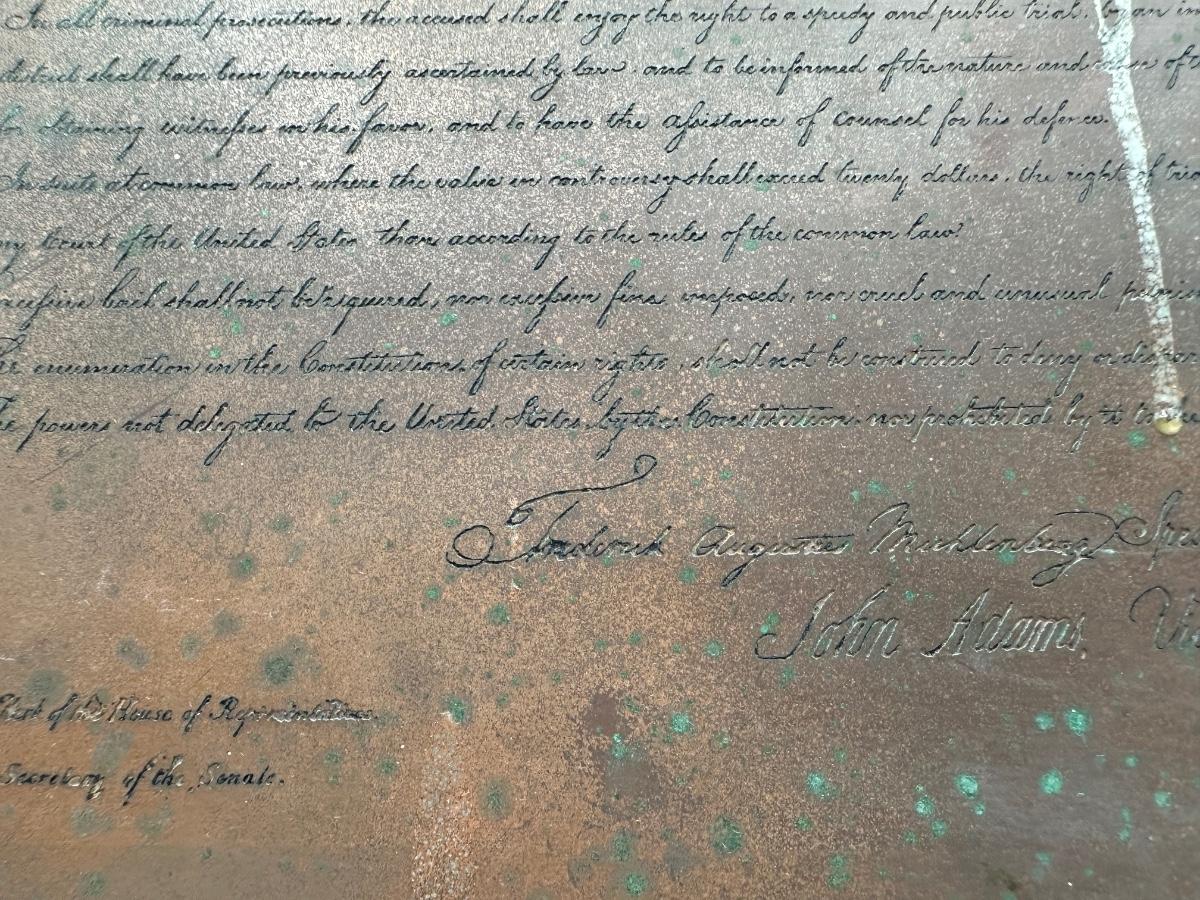 In all criminal prosecutions, the accused shall enjoy the right to a speedy and public trial, by an im
district shall have been previously ascertained by law, and to be informed of the nature and cause of th
for obtaining witnesses in his favor, and to have the assistance of counsel for his defence.
In suits at common law, where the value in controversy shall exceed twenty dollars, the right of tria
ny Court of the United States, than according to the rules of the common law.
cessive bail shall not be required, nor excessive fines imposed, nor cruel and unusual punis
he enumeration in the Constitution, of certain rights, shall not be construed to deny or dispar
he powers not delegated to the United States, by the Constitution, nor prohibited by it to
Frederick Augustus Muhlenberg Spea
John Adams, Vi
Clerk of the House of Representatives.
Secretary of the Senate.